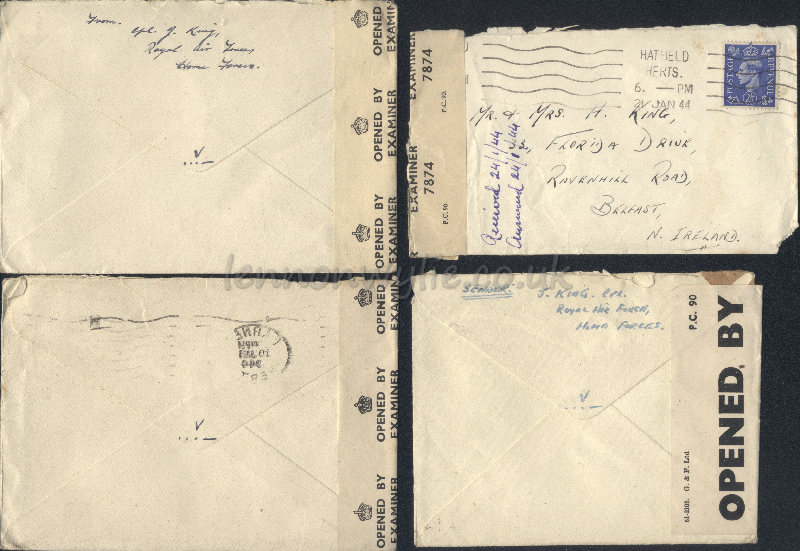 From.
Cpl. J. King,
Royal Air Force,
Home Forces.
V
...—
OPENED BY
EXAMINER
OPENED BY
EXAMINER
OPENED BY
EXAMINER
EXAMINER
7874
P.C. 90.
EXAMINER
7874
P.C. 90.
HATFIELD
HERTS.
6. — PM
21 JAN 44
POSTAGE
REVENUE
MR. & MRS. H. KING,
FLORIDA DRIVE,
RAVENHILL ROAD,
BELFAST,
N. IRELAND.
Received 24/1/44
Answered
lennonwylie.co.uk
LARNE
V
...—
OPENED BY
EXAMINER
OPENED BY
EXAMINER
OPENED BY
EXAMINER
SENDER:
J. KING. CPL.
ROYAL AIR FORCE,
HOME FORCES.
V
...—
P.C. 90
OPENED BY
G. & F. Ltd.